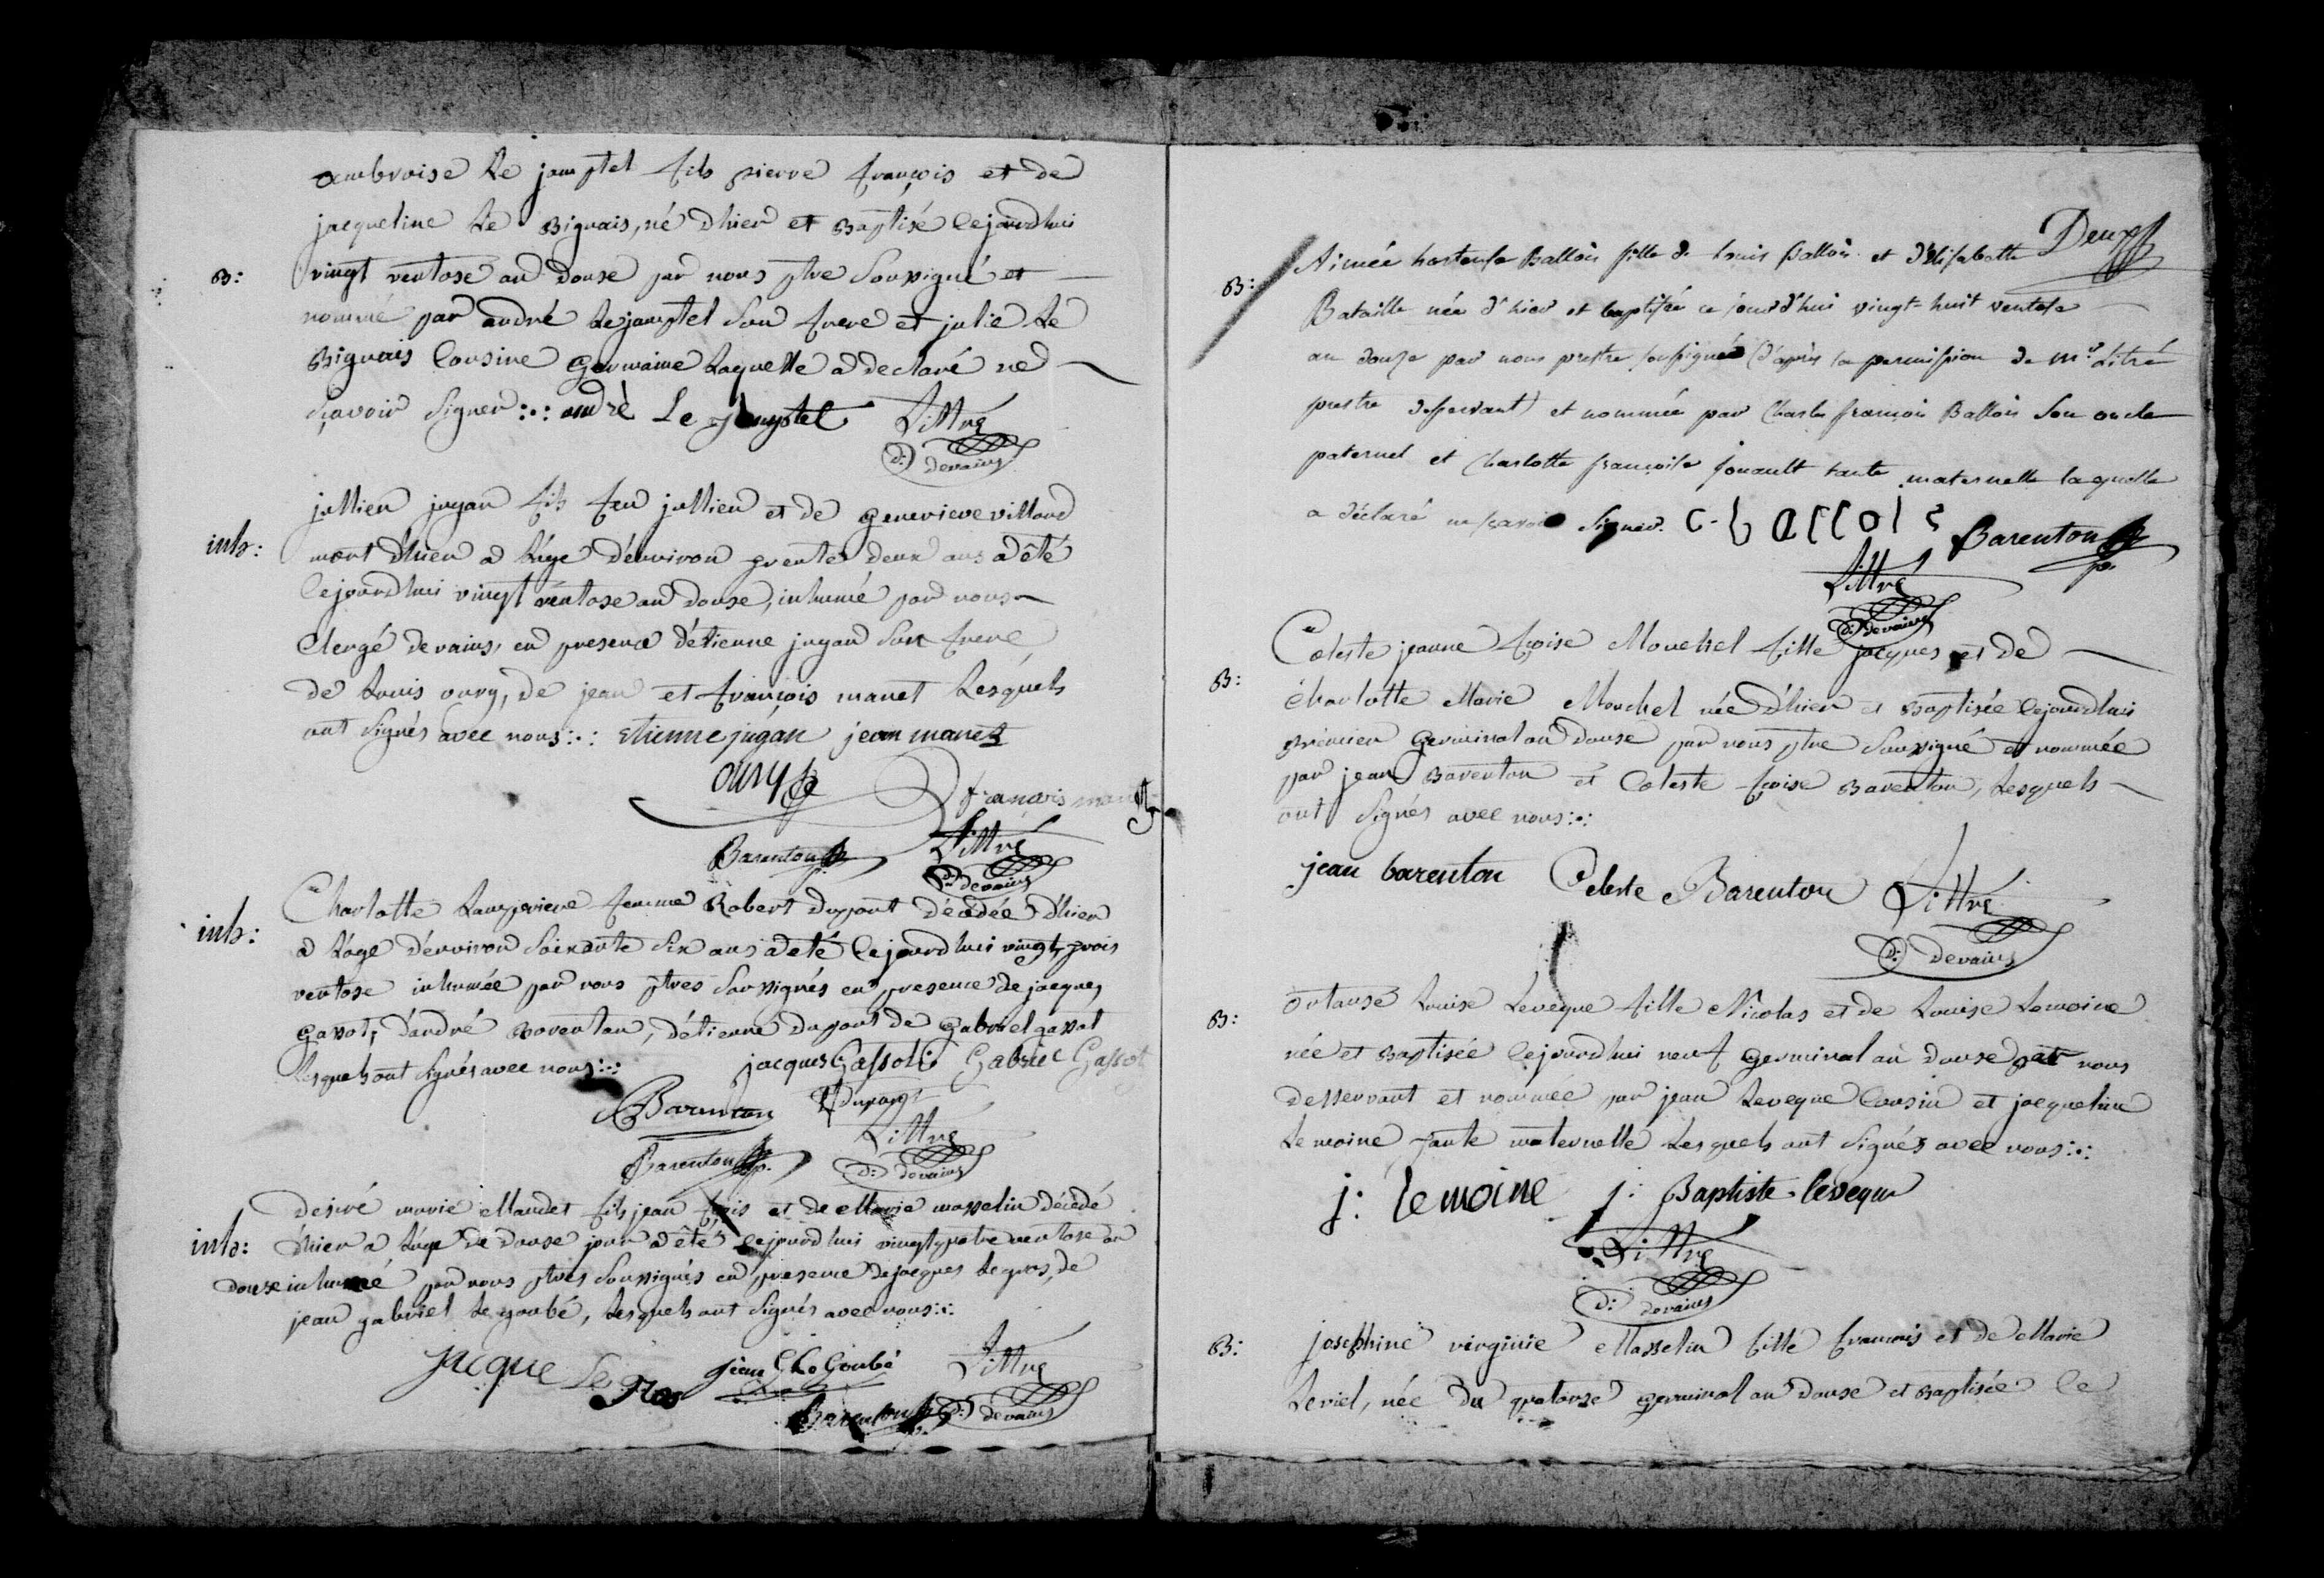 ambroise Le jamptel fils pierre françois et de
jacqueline Le Biguais, né d'hier et Baptisé Cejourdhui
B: vingt ventose an douse par nous ptre Soussigné et
nommé par andré Lejamptel Son frere et julie Le
Biguais Cousine Germaine Laquelle a declaré ne
Sçavoir Signer :: andrè Le jamptel Littré
D: devains
jullien jugan fils feu jullien et de Genevieve villard
inh: mort d'hier a L'age d'environ trente deux ans a été
Cejourdhui vingt ventose an douse, inhumé par nous
Clergé devains, en presence d'étienne jugan Son frere
de Louis oury, de jean et françois manet Lesquels
ont Signés avec nous :: etienne jugan jean manet
oury
françois manet
Barenton p. Littré
D: devains
Charlotte femme Robert Dupont décédée d'hier
inh: a L'age d'environ Soixante Six ans a eté Cejourdhui vingt trois
ventose inhumée par nous ptres Soussignés en presence de jacques
gassot, d'andré Barenton, d'étienne dupont de Gabriel gassot
Lesquels ont Signés avec nous :: jacques Gassot Gabriel Gassot
Barenton E dupont
Littré
Barenton p. D: devains
Desiré marie Maudet fils jean fçois et de Marie masselin décédé
inh: d'hier a L'age de douse jour a été Cejourdhui vingt quatre ventose an
douse inhumé par nous ptres Soussignés en presence de jacques Legros, de
jean gabriel Le goubé, Lesquels ont Signés avec nous ::
jacque Le Gros jean G Le Goubé Littré
Barenton p. D: devains
Deux
Aimée hortense Ballois fille de Louis Ballois et d'Elisabeth
B: Bataille née d'hier et baptisée ce jourd'hui vingt-huit ventose
an douze par nous prestre soussigné (d'après la permission de Mr. Litré
prestre desservant) et nommée par Charles françois Ballois Son oncle
paternel et Charlotte françoise tante maternelle laquelle
a déclaré ne sçavoir Signer. C. f ballois Barenton
p.
Littré
D: devains
Celeste jeanne fçoise Mouchel fille jacques et de
B: Charlotte Marie Mouchel née d'hier et Baptisée Cejourdhui
premier Germinal an douse par nous ptre Soussigné et nommée
par jean Barenton et Celeste fçoise Barenton, Lesquels
ont Signés avec nous ::
jean barenton Celeste Barenton Littré
D: devains
B: ortanse Louise Leveque fille Nicolas et de Louise Lemoine
née et Baptisée Cejourdhui neuf Germinal an douse par nous
desservant et nommée par jean Leveque Cousin et jacqueline
Le moine tante maternelle Lesquels ont Signés avec nous ::
j: le moine j: Baptiste leveque
Littré
D: devains
B: josephine virginie Masselin fille francois et de Marie
Leviel, née du quatorse germinal an douse et Baptisée Ce